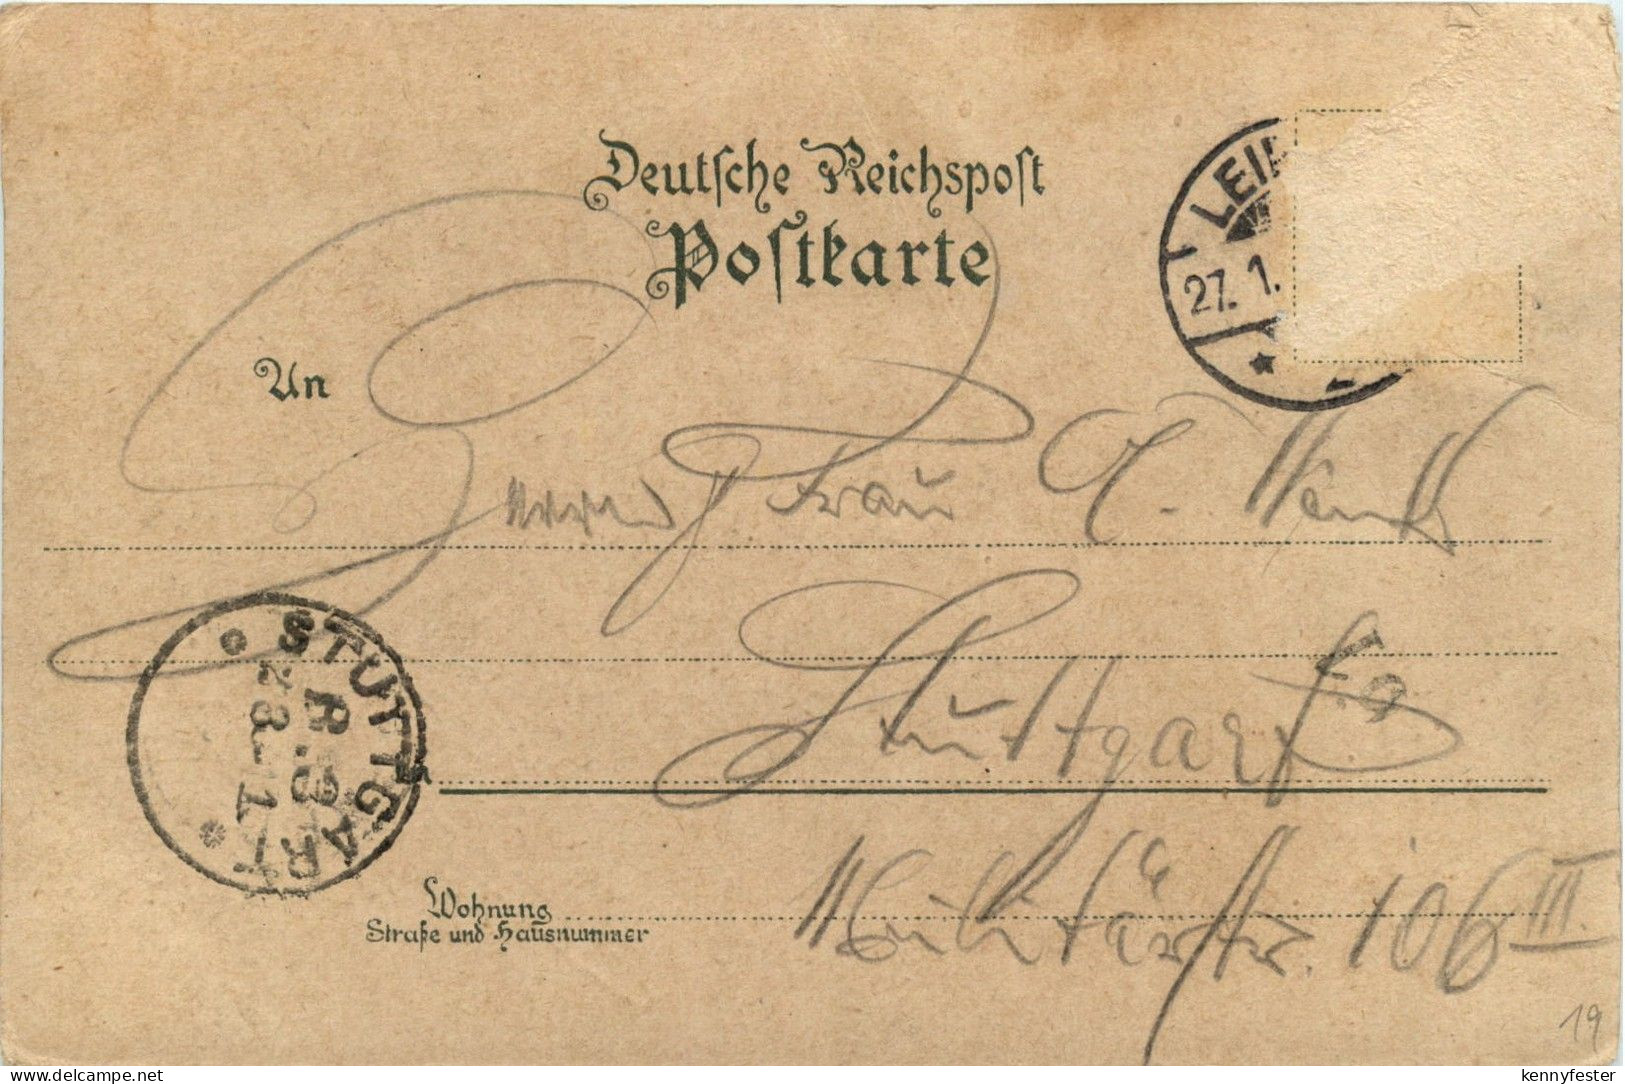 Deutsche Reichspost
Postkarte
LEIP
27. 1.
An
Frau C.
Stuttgart
STUTTGART
28 1
Wohnung
Straße und Hausnummer
Militärstr. 106 III.
19
www.delcampe.net
kennyfester